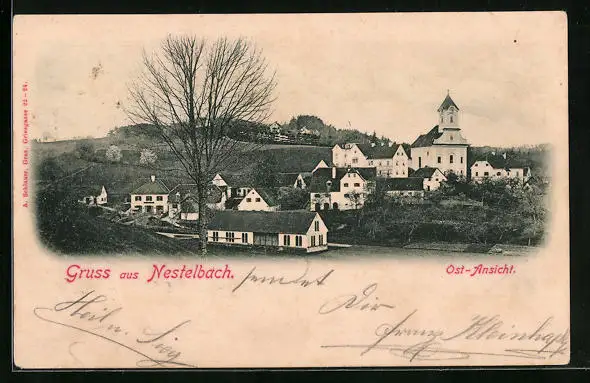 A. Schlauer, Graz, Griesgasse 22–24.
Gruss aus Nestelbach.
Ost-Ansicht.
sendet
Dir
Heil u. Sieg
Franz Kleinhap